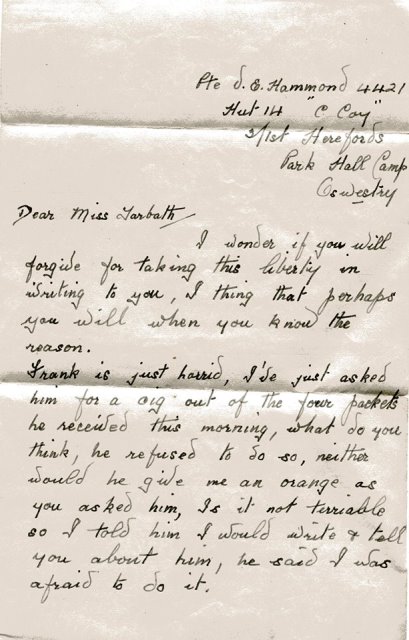 Pte D. E. Hammond 4421
Hut 14 "C Coy"
3/1st Herefords
Park Hall Camp
Oswestry
Dear Miss Tarbath
I wonder if you will
forgive for taking this liberty in
writing to you, I thing that perhaps
you will when you know the
reason.
Frank is just horrid, I've just asked
him for a cig out of the four packets
he received this morning, what do you
think, he refused to do so, neither
would he give me an orange as
you asked him, Is it not terriable
so I told him I would write & tell
you about him, he said I was
afraid to do it.